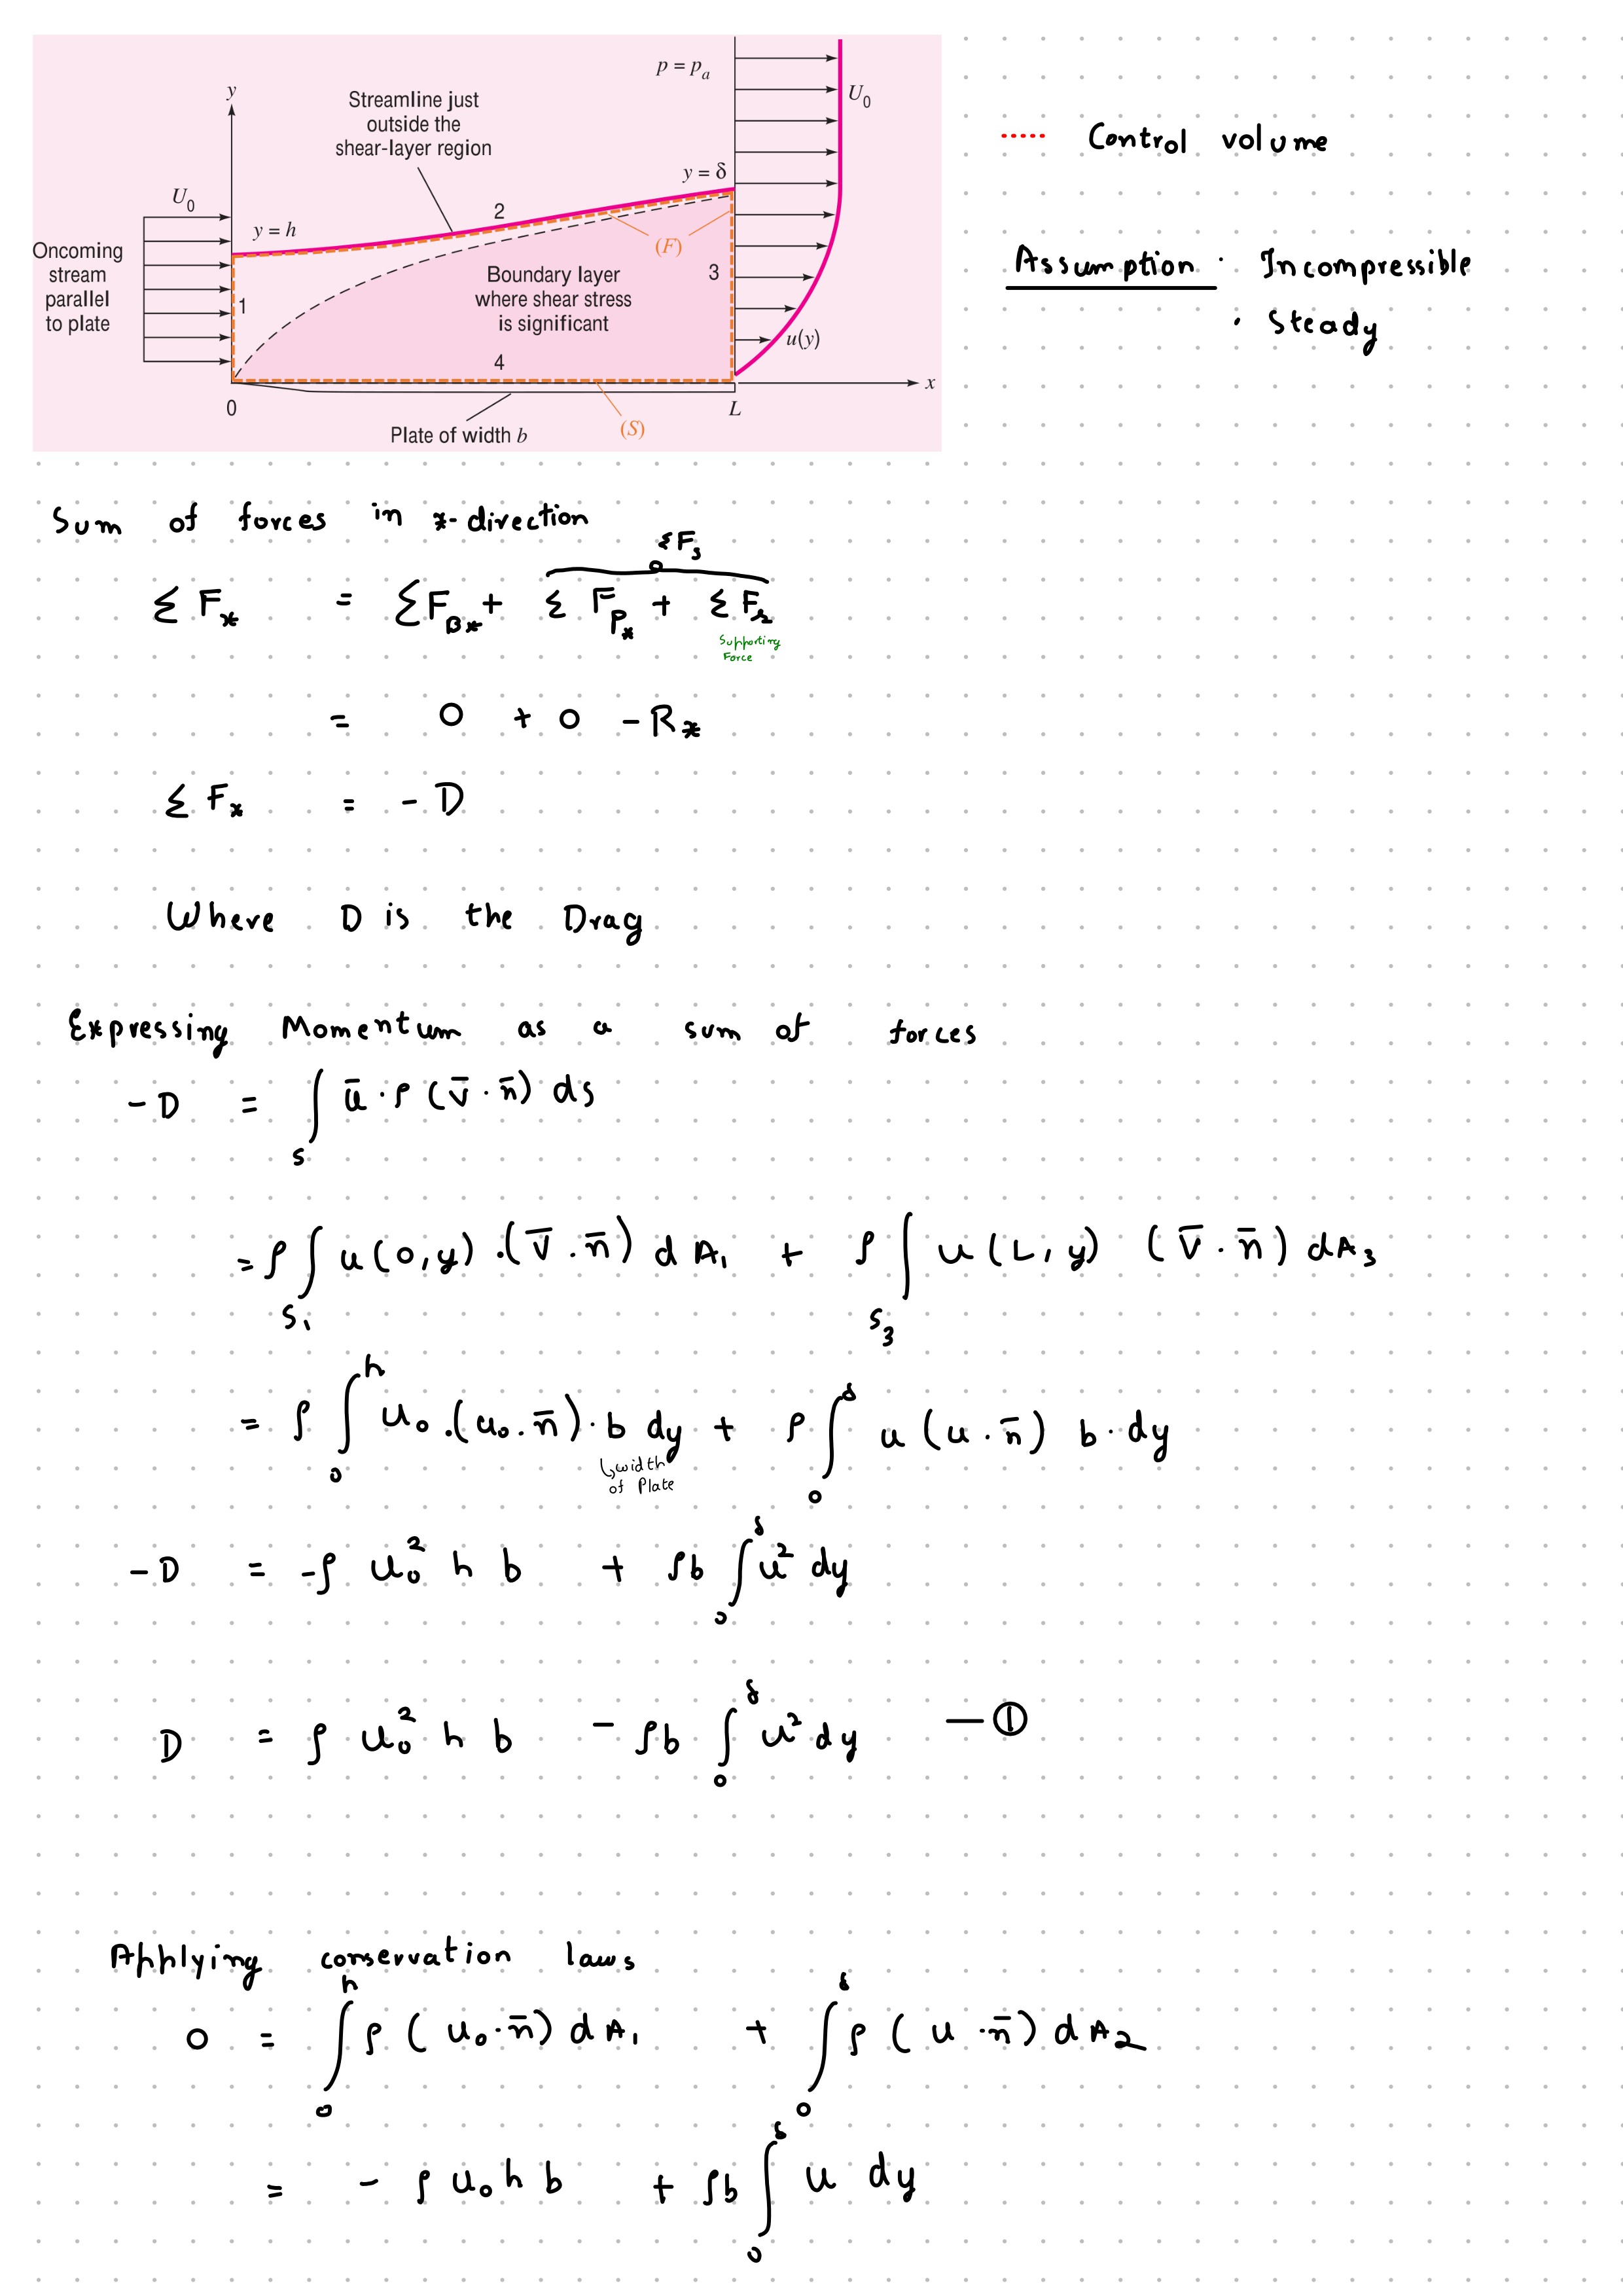 p = pₐ
y
Streamline just
outside the
shear-layer region
U₀
y = δ
U₀
2
y = h
(F)
Oncoming
stream
parallel
to plate
Boundary layer
where shear stress
is significant
3
1
u(y)
4
x
0
L
Plate of width b
(S)
Control volume
Assumption · Incompressible
· Steady
Sum of forces in x-direction
ΣFₛ
Σ Fₓ = Σ F_Bx + Σ F_Px + Σ F_r
Supporting
Force
= 0 + 0 - Rₓ
Σ Fₓ = - D
Where D is the Drag
Expressing Momentum as a sum of forces
- D = ∫_S ū · ρ (v̄ · n̄) ds
= ρ ∫_S₁ u(0,y) · (v̄ · n̄) dA₁ + ρ ∫_S₃ u(L,y) (v̄ · n̄) dA₃
= ρ ∫₀^h u₀ · (u₀ · n̄) · b dy + ρ ∫₀^δ u (u · n̄) b · dy
↳ width
of Plate
- D = -ρ u₀² h b + ρb ∫₀^δ u² dy
D = ρ u₀² h b - ρb ∫₀^δ u² dy — ①
Applying conservation laws
0 = ∫₀^h ρ (u₀ · n̄) dA₁ + ∫₀^δ ρ (u · n̄) dA₂
= - ρ u₀ h b + ρb ∫₀^δ u dy